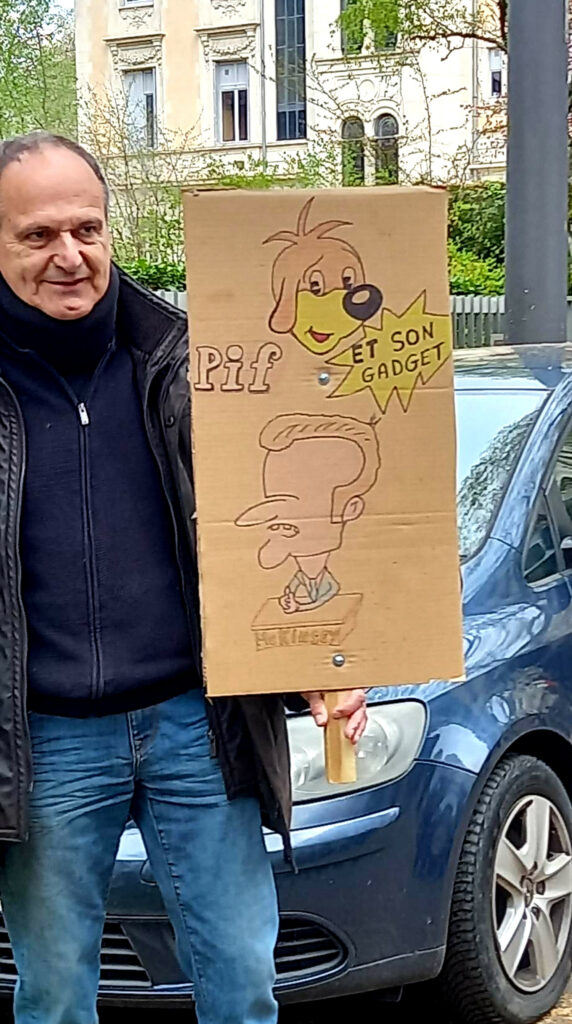 Pif
ET SON
GADGET
McKINSEY